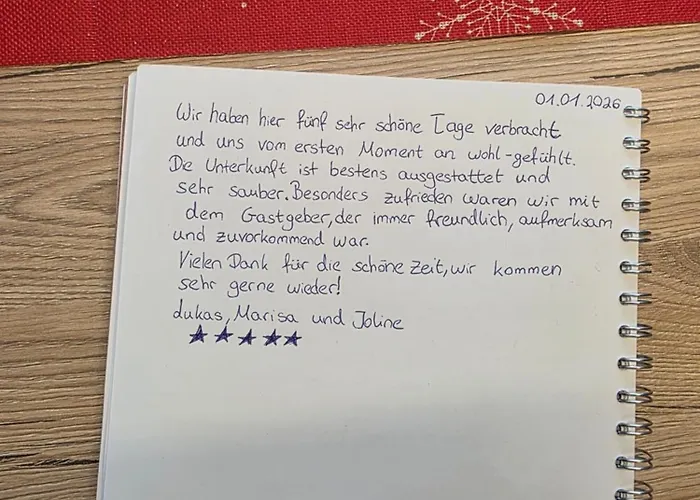 01.01.2026
Wir haben hier fünf sehr schöne Tage verbracht
und uns vom ersten Moment an wohl-gefühlt.
Die Unterkunft ist bestens ausgestattet und
sehr sauber. Besonders zufrieden waren wir mit
dem Gastgeber, der immer freundlich, aufmerksam
und zuvorkommend war.
Vielen Dank für die schöne Zeit, wir kommen
sehr gerne wieder!
Lukas, Marisa und Joline
★★★★★